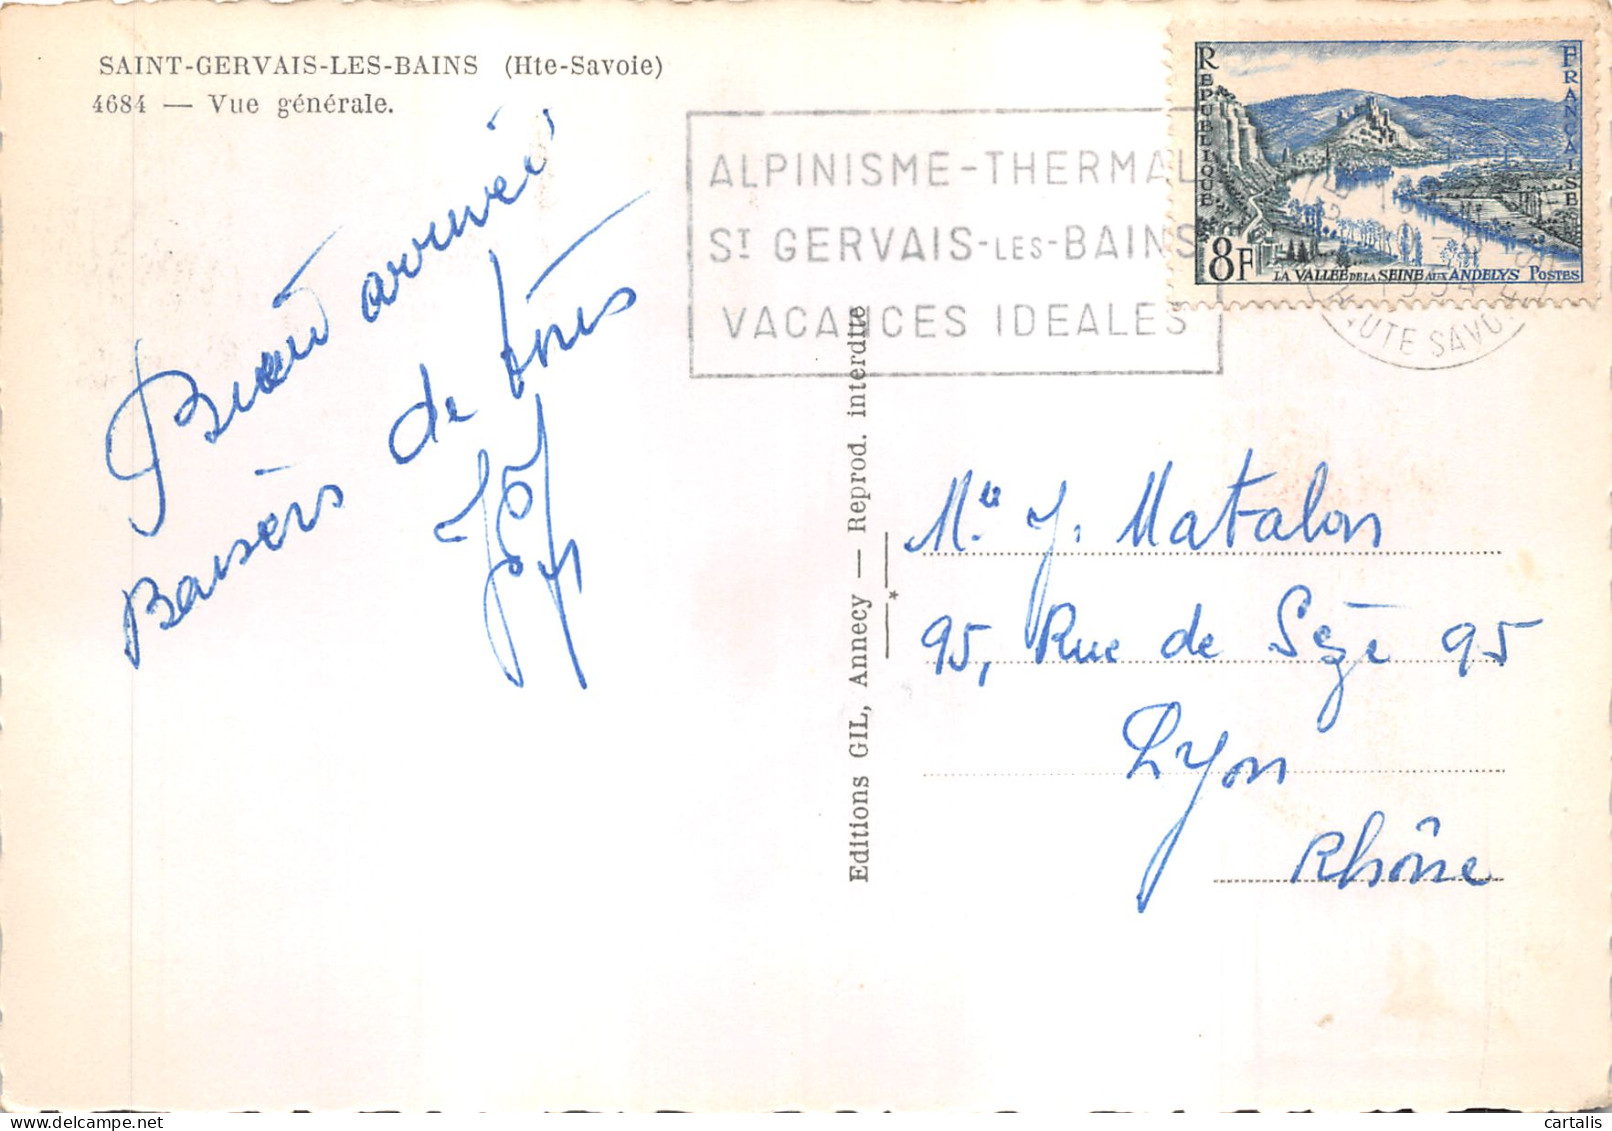 SAINT-GERVAIS-LES-BAINS (Hte-Savoie)
4684 — Vue générale.
Bien arrivés
Baisers de tous
ALPINISME-THERMAL
ST GERVAIS-LES-BAINS
VACANCES IDEALES
REPUBLIQUE FRANÇAISE
8F
LA VALLÉE DE LA SEINE AUX ANDELYS POSTES
1954
HAUTE SAVOIE
Editions GIL, Annecy — Reprod. interdite
*
Mlle J. Matalon
95, Rue de Sèze 95
Lyon
Rhône
cartalis